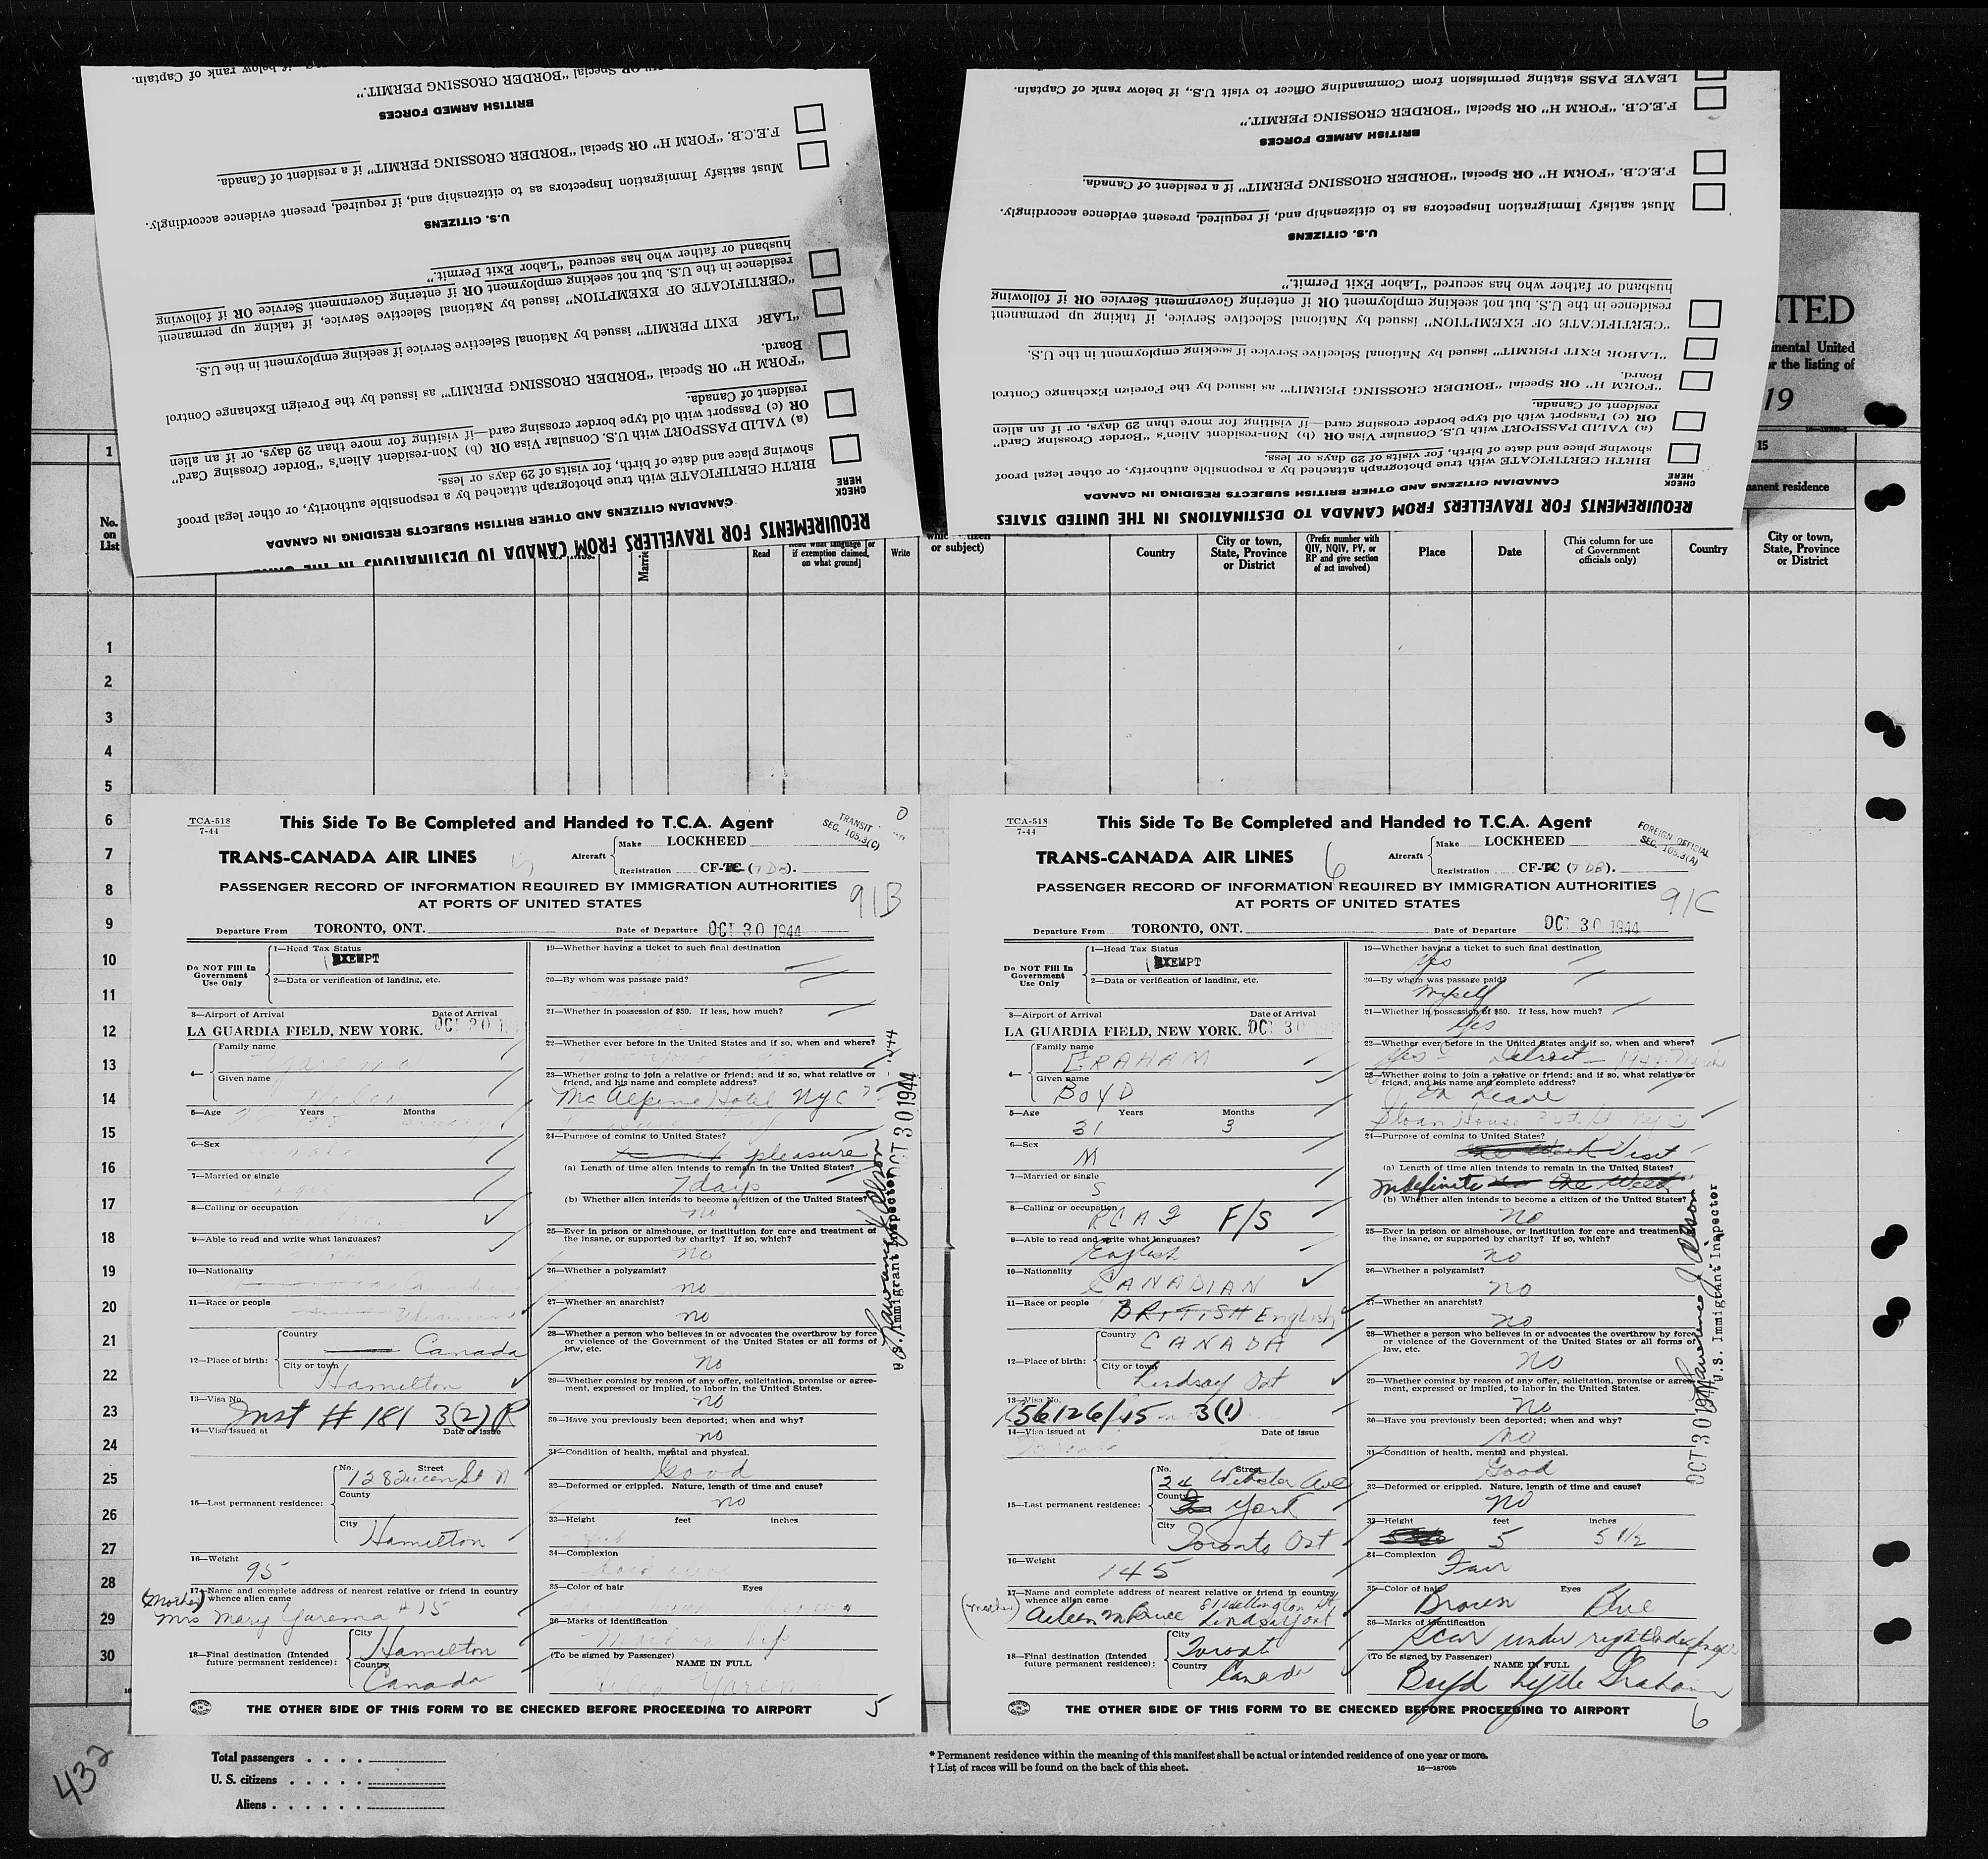 REQUIREMENTS FOR TRAVELLERS FROM CANADA TO DESTINATIONS IN THE
CANADIAN CITIZENS AND OTHER BRITISH SUBJECTS RESIDING IN CANADA
CHECK HERE
BIRTH CERTIFICATE with true photograph attached by a responsible authority, or other legal proof
showing place and date of birth, for visits of 29 days or less.
(a) VALID PASSPORT with U.S. Consular Visa OR (b) Non-resident Alien's "Border Crossing Card"
OR (c) Passport with old type border crossing card—if visiting for more than 29 days, or if an alien
resident of Canada.
"FORM H" OR Special "BORDER CROSSING PERMIT" as issued by the Foreign Exchange Control
Board.
"LABO EXIT PERMIT" issued by National Selective Service if seeking employment in the U.S.
"CERTIFICATE OF EXEMPTION" issued by National Selective Service, if taking up permanent
residence in the U.S. but not seeking employment OR if entering Government Service OR if following
husband or father who has secured "Labor Exit Permit."
U.S. CITIZENS
Must satisfy Immigration Inspectors as to citizenship and, if required, present evidence accordingly.
F.E.C.B. "FORM H" OR Special "BORDER CROSSING PERMIT" if a resident of Canada.
BRITISH ARMED FORCES
OR Special "BORDER CROSSING PERMIT."
if below rank of Captain.
REQUIREMENTS FOR TRAVELLERS FROM CANADA TO DESTINATIONS IN THE UNITED STATES
CANADIAN CITIZENS AND OTHER BRITISH SUBJECTS RESIDING IN CANADA
CHECK HERE
BIRTH CERTIFICATE with true photograph attached by a responsible authority, or other legal proof
showing place and date of birth, for visits of 29 days or less.
(a) VALID PASSPORT with U.S. Consular Visa OR (b) Non-resident Alien's "Border Crossing Card"
OR (c) Passport with old type border crossing card—if visiting for more than 29 days, or if an alien
resident of Canada.
"FORM H" OR Special "BORDER CROSSING PERMIT" as issued by the Foreign Exchange Control
Board.
"LABOR EXIT PERMIT" issued by National Selective Service if seeking employment in the U.S.
"CERTIFICATE OF EXEMPTION" issued by National Selective Service, if taking up permanent
residence in the U.S. but not seeking employment OR if entering Government Service OR if following
husband or father who has secured "Labor Exit Permit."
U.S. CITIZENS
Must satisfy Immigration Inspectors as to citizenship and, if required, present evidence accordingly.
F.E.C.B. "FORM H" OR Special "BORDER CROSSING PERMIT" if a resident of Canada.
BRITISH ARMED FORCES
F.E.C.B. "FORM H" OR Special "BORDER CROSSING PERMIT."
LEAVE PASS stating permission from Commanding Officer to visit U.S., if below rank of Captain.
ITED
inental United
r the listing of
19
1
15
anent residence
No. on List
Read
Read what language [or if exemption claimed, on what ground]
Write
or subject)
Country
City or town, State, Province or District
(Prefix number with QIV, NQIV, PV, or RP and give section of act involved)
Place
Date
(This column for use of Government officials only)
Country
City or town, State, Province or District
1
2
3
4
5
6
7
8
9
10
11
12
13
14
15
16
17
18
19
20
21
22
23
24
25
26
27
28
29
30
TCA-518
7-44
This Side To Be Completed and Handed to T.C.A. Agent
TRANSIT
SEC. 105.3(C)
TRANS-CANADA AIR LINES
Aircraft
Make LOCKHEED
Registration CF-TC (TDB).
PASSENGER RECORD OF INFORMATION REQUIRED BY IMMIGRATION AUTHORITIES
AT PORTS OF UNITED STATES
91B
Departure From TORONTO, ONT. Date of Departure OCT 30 1944
Do NOT Fill In Government Use Only
1—Head Tax Status
EXEMPT
2—Data or verification of landing, etc.
3—Airport of Arrival Date of Arrival
LA GUARDIA FIELD, NEW YORK. OCT 30
4—
Family name
Given name
5—Age Years Months
6—Sex
7—Married or single
8—Calling or occupation
9—Able to read and write what languages?
10—Nationality
11—Race or people
12—Place of birth:
Country Canada
City or town Hamilton
13—Visa No. Inst # 181 3(2) R
14—Visa issued at Date of issue
15—Last permanent residence:
No. Street
128 Queen St N
County
City Hamilton
16—Weight 95
17—Name and complete address of nearest relative or friend in country
whence alien came
(Mother)
Mrs Mary Yarema # 15
18—Final destination (Intended future permanent residence):
City Hamilton
Country Canada
19—Whether having a ticket to such final destination
20—By whom was passage paid?
21—Whether in possession of $50. If less, how much?
22—Whether ever before in the United States and if so, when and where?
23—Whether going to join a relative or friend; and if so, what relative or
friend, and his name and complete address?
Mc Alpine Hotel NYC
24—Purpose of coming to United States?
pleasure
(a) Length of time alien intends to remain in the United States?
7 days
(b) Whether alien intends to become a citizen of the United States?
no
25—Ever in prison or almshouse, or institution for care and treatment of
the insane, or supported by charity? If so, which?
no
26—Whether a polygamist?
no
27—Whether an anarchist?
no
28—Whether a person who believes in or advocates the overthrow by force
or violence of the Government of the United States or all forms of
law, etc.
no
29—Whether coming by reason of any offer, solicitation, promise or agree-
ment, expressed or implied, to labor in the United States.
no
30—Have you previously been deported; when and why?
no
31—Condition of health, mental and physical.
Good
32—Deformed or crippled. Nature, length of time and cause?
no
33—Height feet inches
34—Complexion
35—Color of hair Eyes
36—Marks of identification
(To be signed by Passenger) NAME IN FULL
OCT 30 1944
U.S. Immigrant Inspector
THE OTHER SIDE OF THIS FORM TO BE CHECKED BEFORE PROCEEDING TO AIRPORT
5
TCA-518
7-44
This Side To Be Completed and Handed to T.C.A. Agent
FOREIGN OFFICIAL
SEC. 105.3(A)
TRANS-CANADA AIR LINES
6
Aircraft
Make LOCKHEED
Registration CF-TC (TDB).
PASSENGER RECORD OF INFORMATION REQUIRED BY IMMIGRATION AUTHORITIES
AT PORTS OF UNITED STATES
91C
Departure From TORONTO, ONT. Date of Departure OCT 30 1944
Do NOT Fill In Government Use Only
1—Head Tax Status
EXEMPT
2—Data or verification of landing, etc.
3—Airport of Arrival Date of Arrival
LA GUARDIA FIELD, NEW YORK. OCT 30
4—
Family name GRAHAM
Given name BOYD
5—Age Years Months
31 3
6—Sex M
7—Married or single S
8—Calling or occupation RCAF F/S
9—Able to read and write what languages?
English
10—Nationality CANADIAN
11—Race or people BRITISH English
12—Place of birth:
Country CANADA
City or town Lindsay Ont
13—Visa No. 156126/45 3(1)
14—Visa issued at Date of issue
Toronto
15—Last permanent residence:
No. Street
24 Webster Ave
County York
City Toronto Ont
16—Weight 145
17—Name and complete address of nearest relative or friend in country
whence alien came
(mother) 81 Wellington St,
Lindsay Ont
18—Final destination (Intended future permanent residence):
City Toront
Country Canada
19—Whether having a ticket to such final destination
Yes
20—By whom was passage paid?
Myself
21—Whether in possession of $50. If less, how much?
Yes
22—Whether ever before in the United States and if so, when and where?
Yes Detroit — 1944 March
23—Whether going to join a relative or friend; and if so, what relative or
friend, and his name and complete address?
On Leave
Sloan House NYC
24—Purpose of coming to United States?
Visit
(a) Length of time alien intends to remain in the United States?
Indefinite One Week
(b) Whether alien intends to become a citizen of the United States?
no
25—Ever in prison or almshouse, or institution for care and treatment of
the insane, or supported by charity? If so, which?
no
26—Whether a polygamist?
no
27—Whether an anarchist?
no
28—Whether a person who believes in or advocates the overthrow by force
or violence of the Government of the United States or all forms of
law, etc.
no
29—Whether coming by reason of any offer, solicitation, promise or agree-
ment, expressed or implied, to labor in the United States.
no
30—Have you previously been deported; when and why?
no
31—Condition of health, mental and physical.
Good
32—Deformed or crippled. Nature, length of time and cause?
no
33—Height feet inches
5 5 1/2
34—Complexion
Fair
35—Color of hair Eyes
Brown Blue
36—Marks of identification
Scar under right index finger
(To be signed by Passenger) NAME IN FULL
Boyd Lyde Graham
OCT 30 1944
U.S. Immigrant Inspector
THE OTHER SIDE OF THIS FORM TO BE CHECKED BEFORE PROCEEDING TO AIRPORT
6
432
Total passengers . . . .
U. S. citizens . . . . .
Aliens . . . . . .
* Permanent residence within the meaning of this manifest shall be actual or intended residence of one year or more.
† List of races will be found on the back of this sheet.
16—18709b